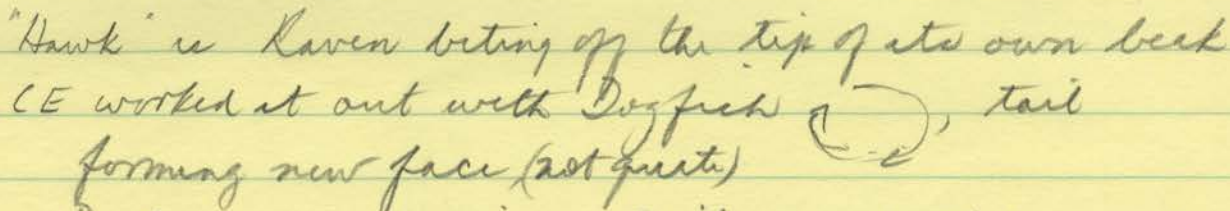 "Hawk" is Raven biting off the tip of its own beak
CE worked it out with Dogfish , tail
forming new face (not quite)